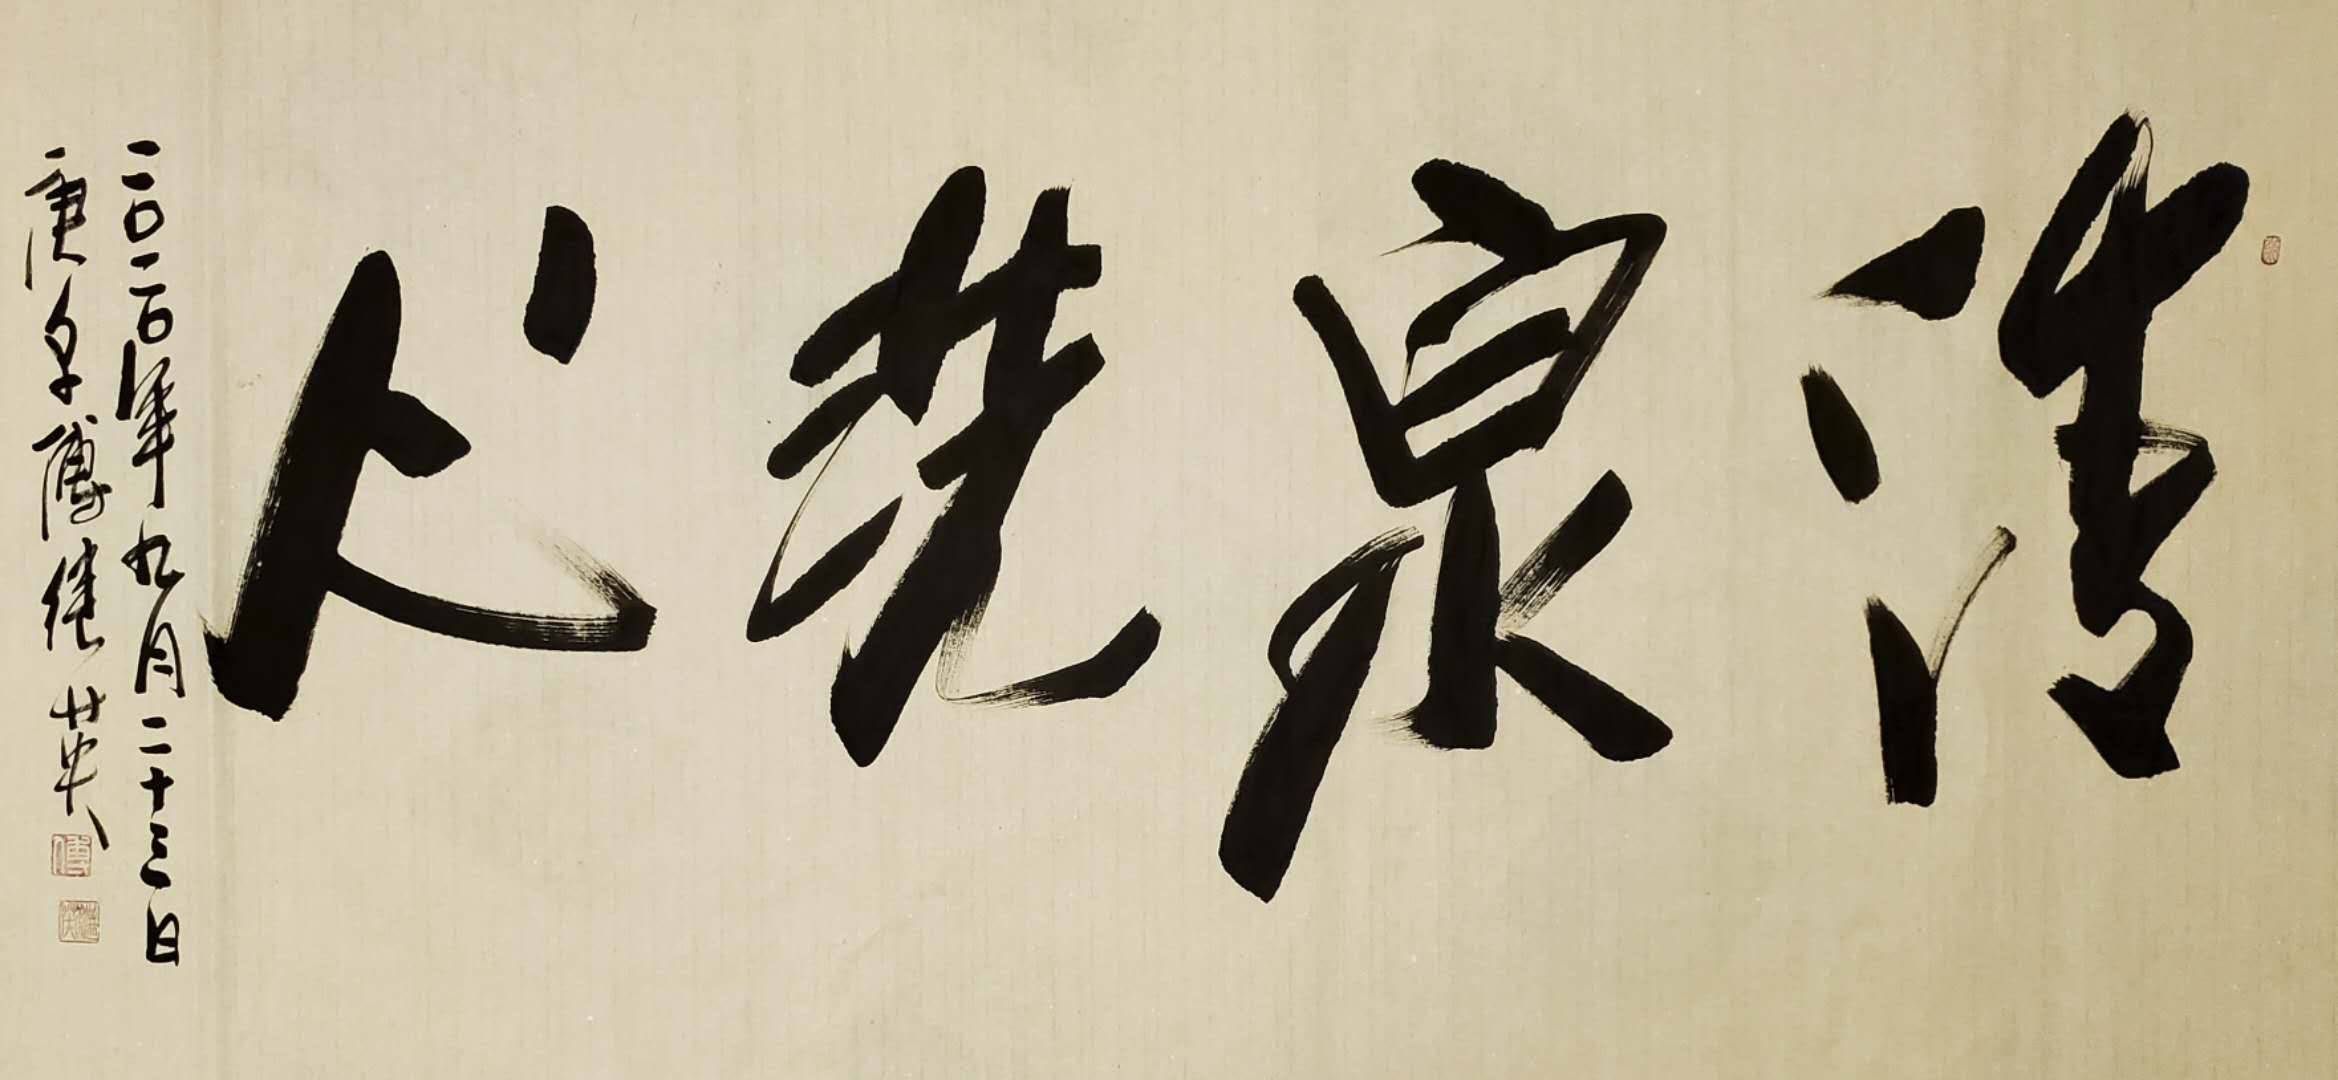 清泉洗心
二〇二〇年九月二十三日
庚子傅继英